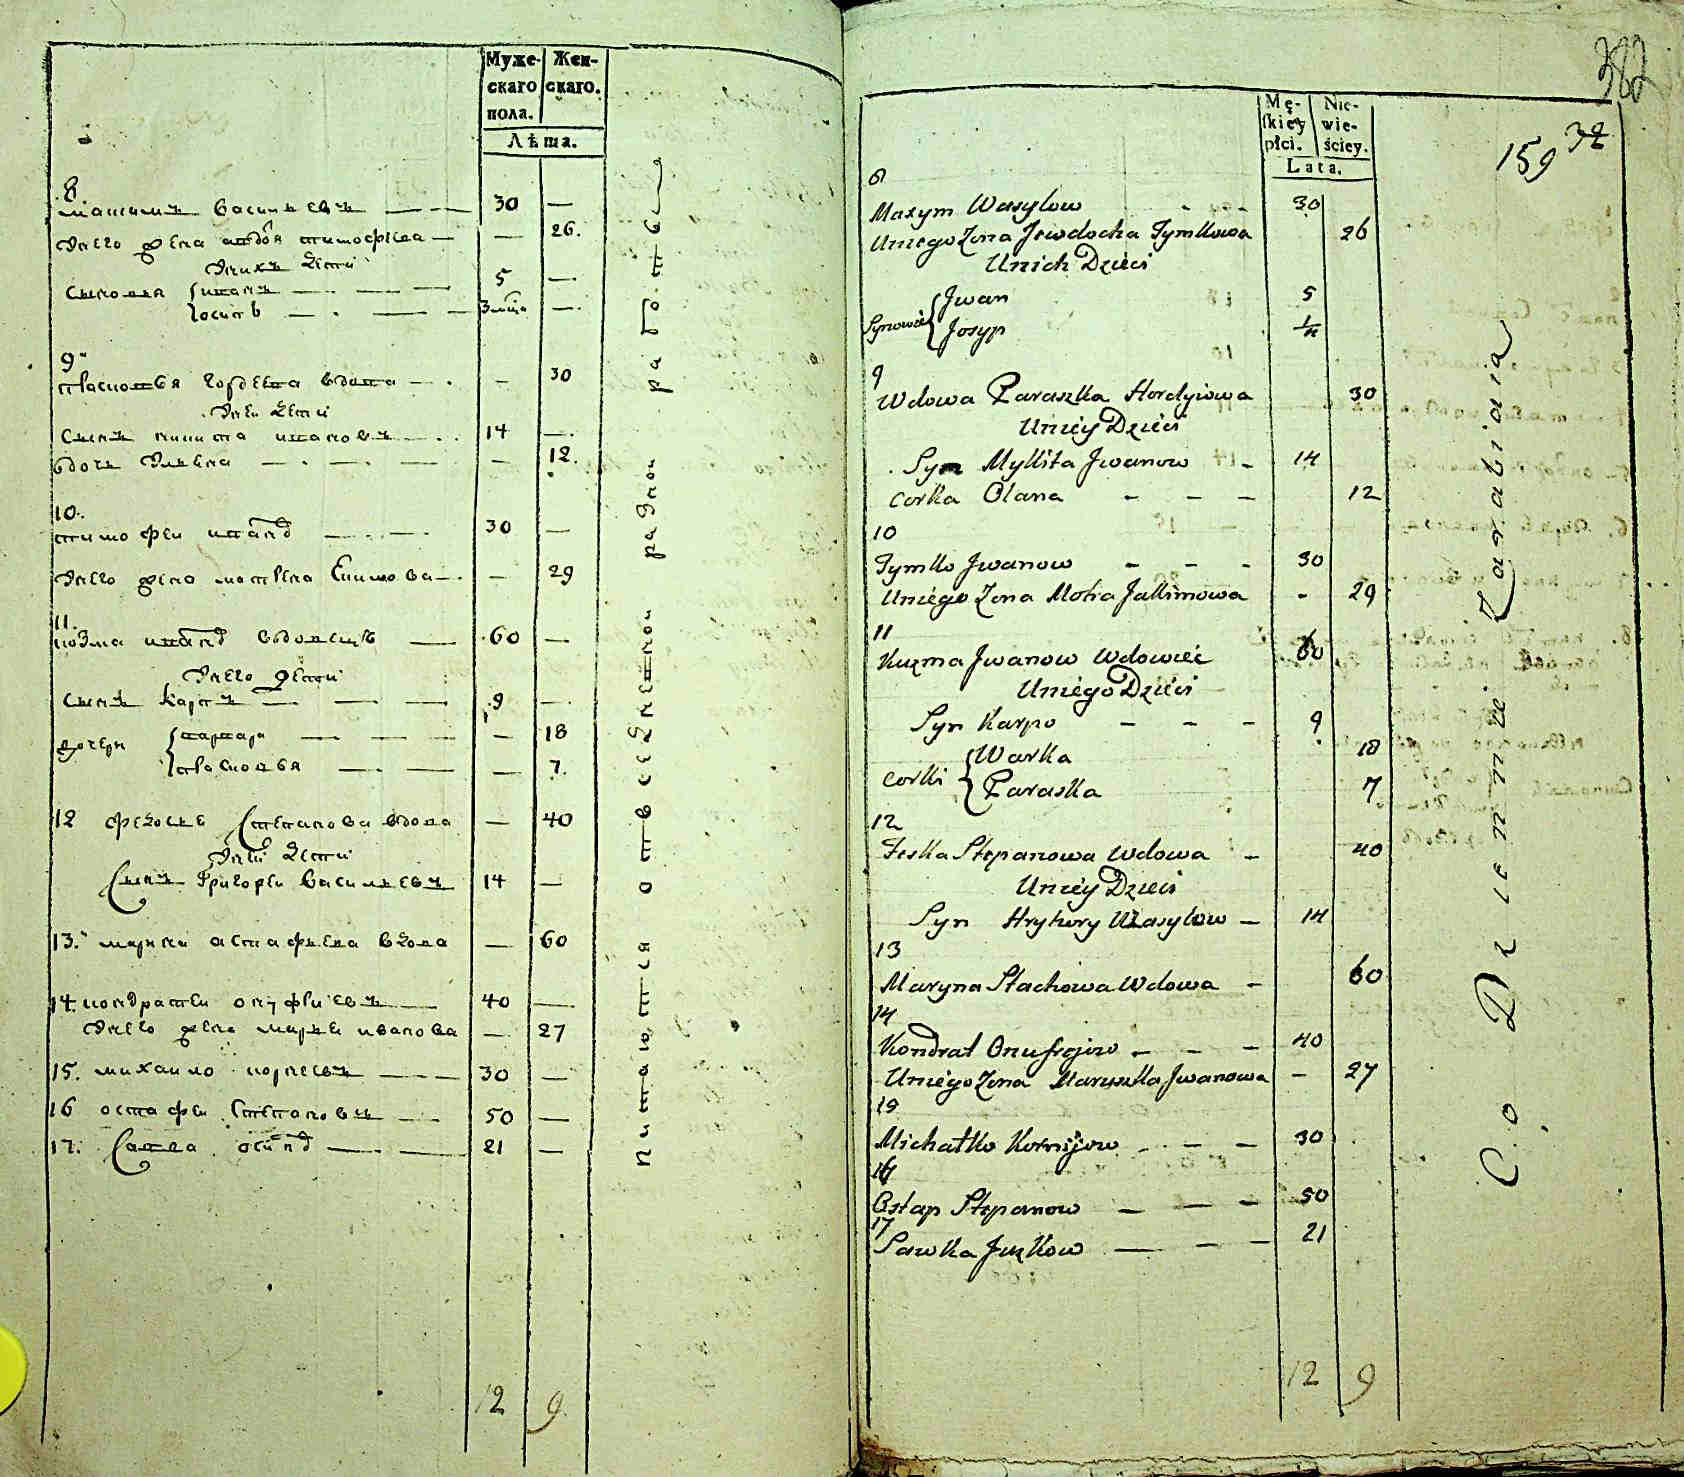 Муже-
скаго
пола.
Жен-
скаго.
Лѣта.
8.
Максимъ Васильевъ — — 30 —
унего жена авдѣя тимофѣева — — 26.
унихъ дети
Сыновья иванъ — — — 5 —
осипъ — . — — 3 мсца —
9"
пбасковья гордеева вдова — . — 30
унеи дети
Сынъ никита ивановъ — . . 14 —
вдочь ульяна — . — . — — 12.
10.
тимофеи иванов — . . — 30 —
унего жена мотвена Екимова — . — 29
11.
козма иванов вдовецъ — 60 —
унего дети
Сынъ Карпъ — — — 9 —
дочери варвара — — — — 18
прасковья — . — — 7.
12 федосье Степанова вдова — 40
унеи дети
Сынъ Григореи Васильевъ 14 —
13." марина астафьева вдова — 60
14. кондратеи онуфриевъ — 40 —
унего жена марья иванова — 27
15. михаило корнеевъ — — 30 —
16 остафеи Степановъ — — 50 —
17. Савва осипов — . — 21 —
питаются отвседневнои разнои работы
12 9
382
Mę-
skiey
płci.
Nie-
wie-
ściey.
Lata.
159 32
8
Maxym Wasylow - - - 30
Uniego Zona Jewdocha Tymkowa 26
Unich Dzieci
Synowie Jwan 5
Josyp
9
Wdowa Paraszka Hordyiowa 30
Uniey Dzieci
Syn Mykita Jwanow - 14
Corka Olana - - - 12
10
Tymko Jwanow - - - 30
Uniego Zona Motra Jakimowa - 29
11
Kuzma Jwanow Wdowiec 60
Uniego Dzieci
Syn Karpo - - - 9
Corki Warka 18
Paraska 7
12
Feska Stepanowa Wdowa - 40
Uniey Dzieci
Syn Hryhory Wasylow - 14
13
Maryna Stachowa Wdowa - 60
14
Kondrat Onufryiow - - - 40
Uniego Zona Maryszka Jwanowa - 27
15
Michałko Korniiow - - - 30
16
Ostap Stepanow - - - 50
17
Sawka Juzkow — - - 21
Co Dziennie Zarabiaia
12 9